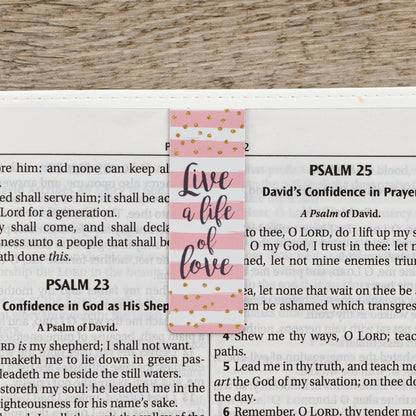 2
ore him: and none can keep al
d shall serve him; it shall be ac
Lord for a generation.
y shall come, and shall decla
sness unto a people that shall be
ath done this.
PSALM 23
Confidence in God as His Shep
A Psalm of David.
RD is my shepherd; I shall not want.
maketh me to lie down in green pas-
leadeth me beside the still waters.
storeth my soul: he leadeth me in the
righteousness for his name's sake.
Live
a life
of
love
PSALM 25
David's Confidence in Prayer
A Psalm of David.
to thee, O LORD, do I lift up my s
O my God, I trust in thee: let m
med, let not mine enemies triump
ea, let none that wait on thee be a
am be ashamed which transgres
4 Shew me thy ways, O LORD; teach
paths.
5 Lead me in thy truth, and teach me
art the God of my salvation; on thee do
the day.
6 Remember, O LORD, thy tender